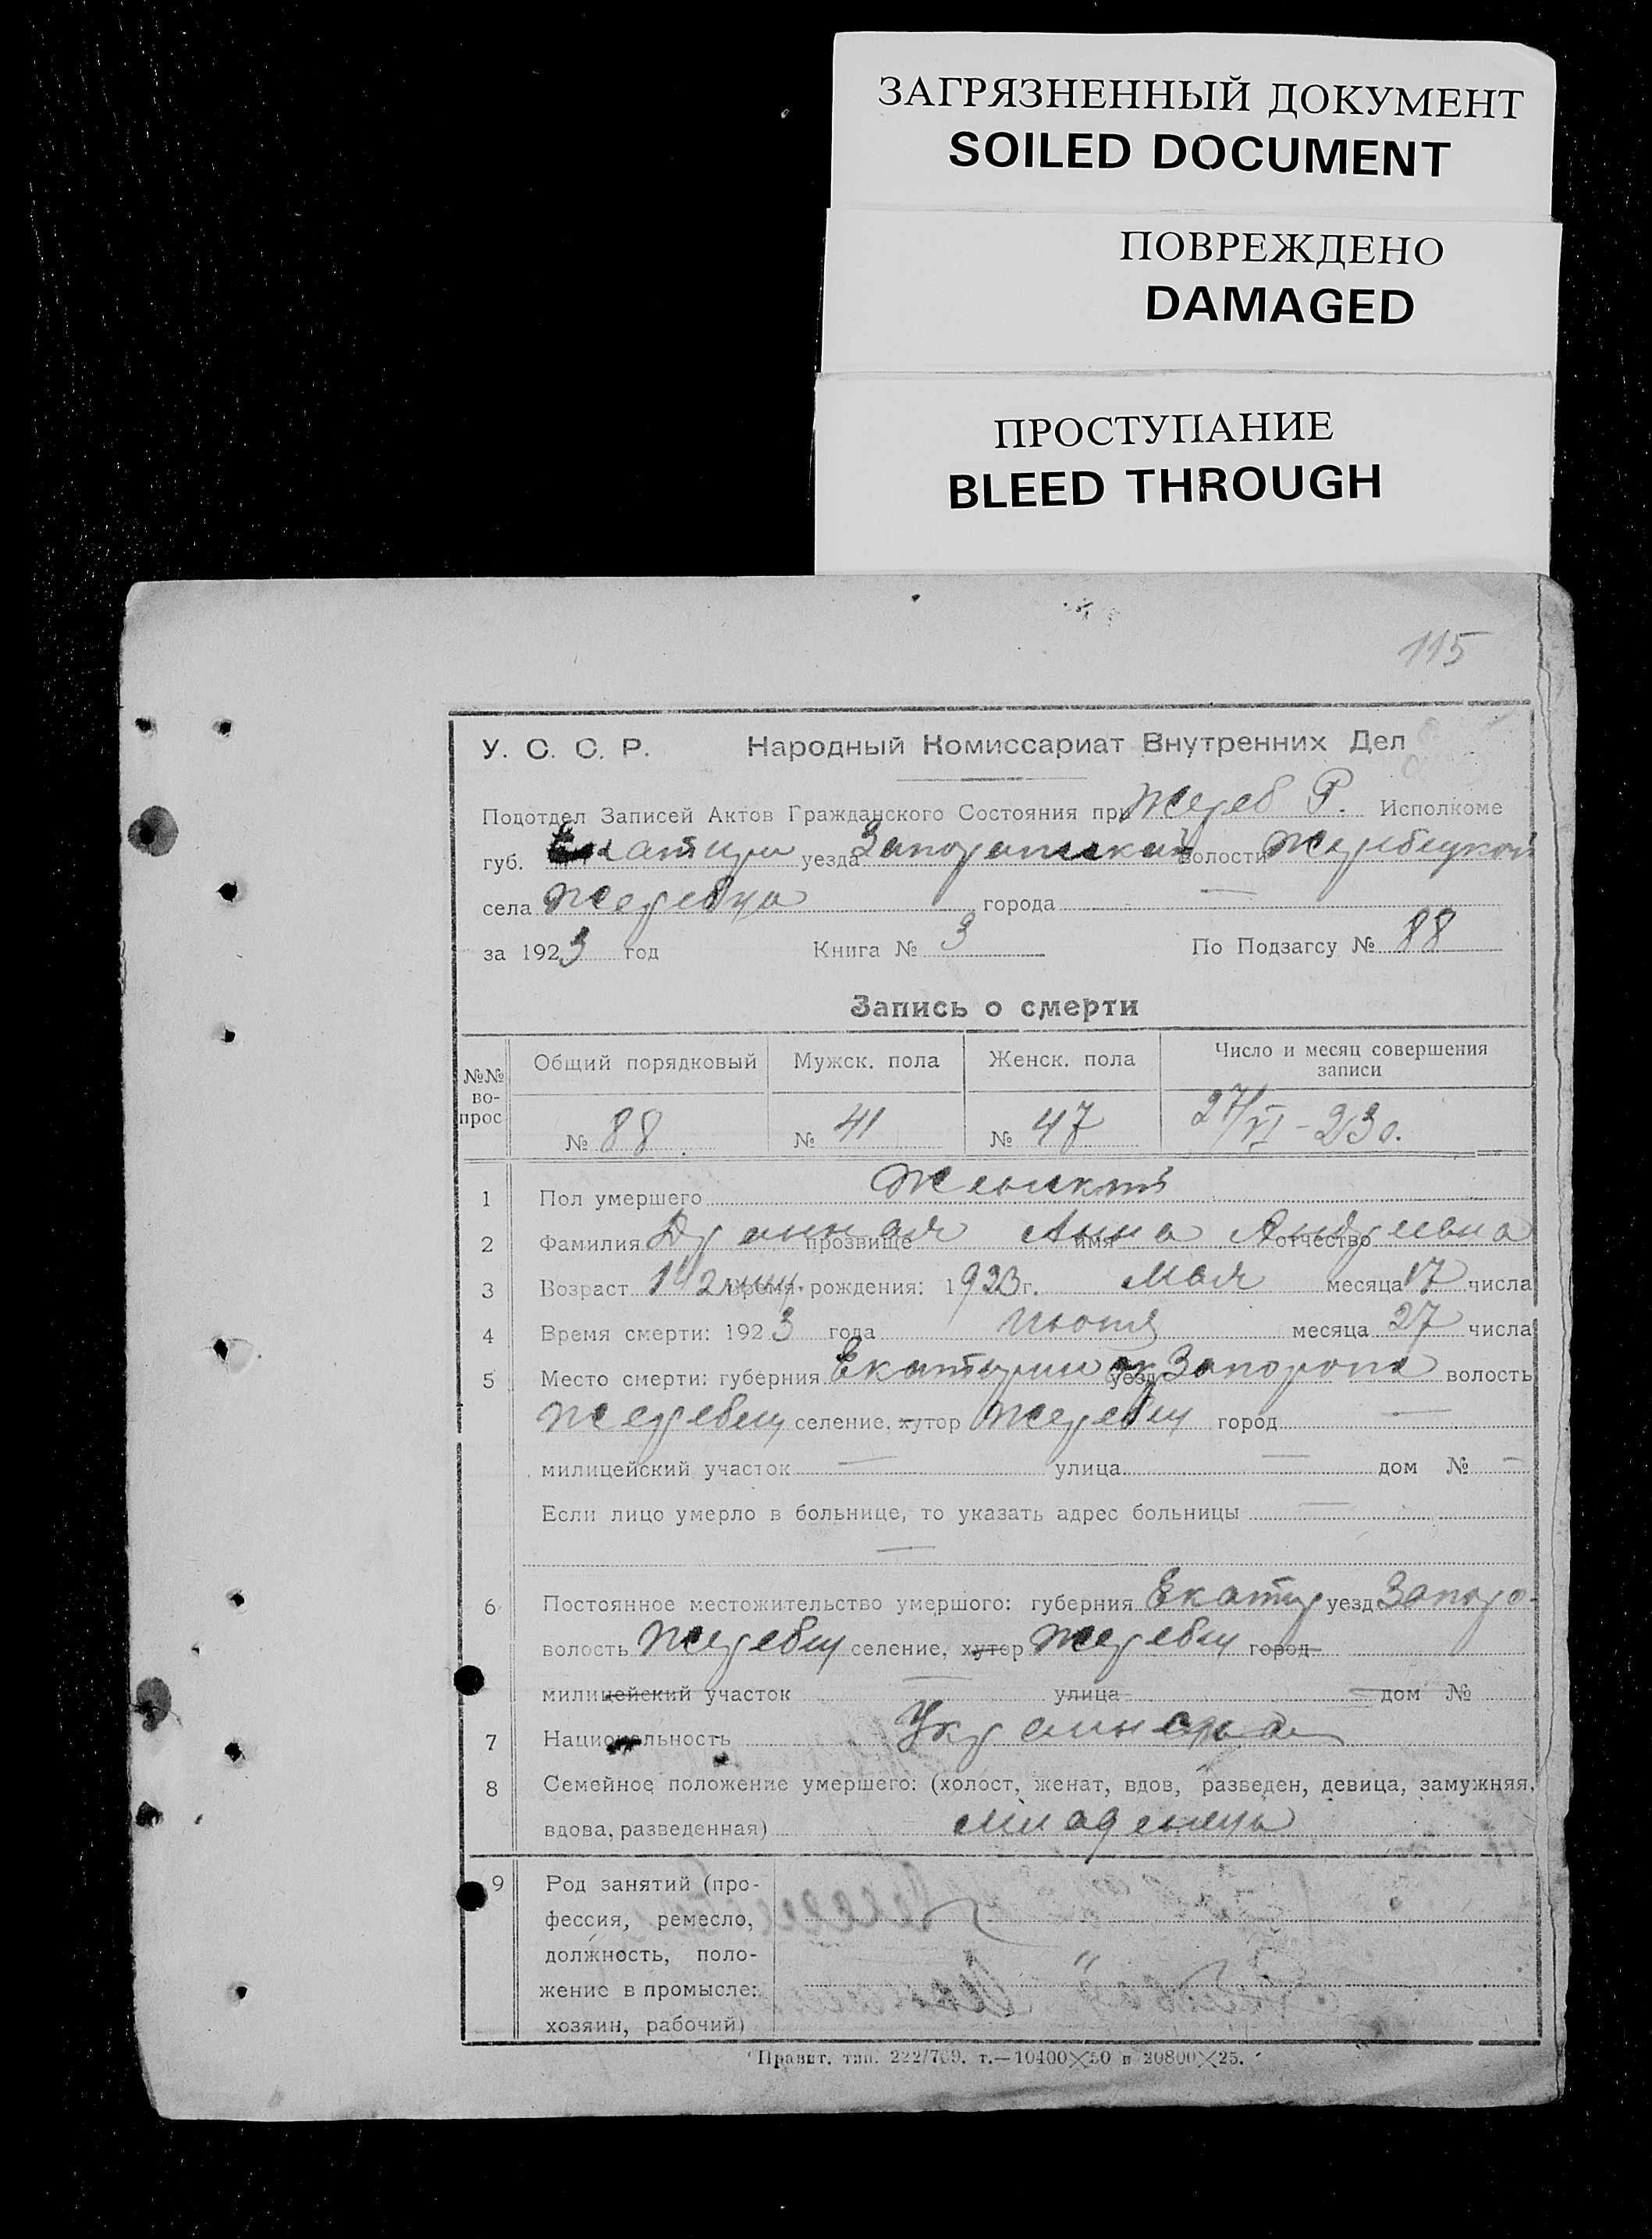 ЗАГРЯЗНЕННЫЙ ДОКУМЕНТ
SOILED DOCUMENT
ПОВРЕЖДЕНО
DAMAGED
ПРОСТУПАНИЕ
BLEED THROUGH
115
У. С. С. Р. Народный Комиссариат Внутренних Дел
Подотдел Записей Актов Гражданского Состояния при Жереб Р. Исполкоме
губ. уезда Запорожский волости Жеребецкой
села Жеребца города —
за 1923 год Книга № 3 По Подзагсу № 88
Запись о смерти
№№ вопрос
Общий порядковый Мужск. пола Женск. пола Число и месяц совершения записи
№ 88 № 41 № 47 27/VI - 23 г.
1 Пол умершего Женский
2 Фамилия прозвище Анна имя Андреевна отчество
3 Возраст время рождения: 1923 г. Мая месяца 17 числа
4 Время смерти: 1923 года Июня месяца 27 числа
5 Место смерти: губерния Екатерин уезд Запорож волость
Жеребец селение, хутор Жеребец город —
милицейский участок — улица — дом № —
Если лицо умерло в больнице, то указать адрес больницы —
—
6 Постоянное местожительство умершого: губерния Екатер уезд Запоро-
волость Жеребец селение, хутор Жеребец город
милицейский участок — улица дом №
7 Национальность Украинка
8 Семейное положение умершего: (холост, женат, вдов, разведен, девица, замужняя,
вдова, разведенная) младенец
9 Род занятий (про-
фессия, ремесло,
должность, поло-
жение в промысле:
хозяин, рабочий)
Правит. тип. 222/709. т.—10400×50 и 20800×25.